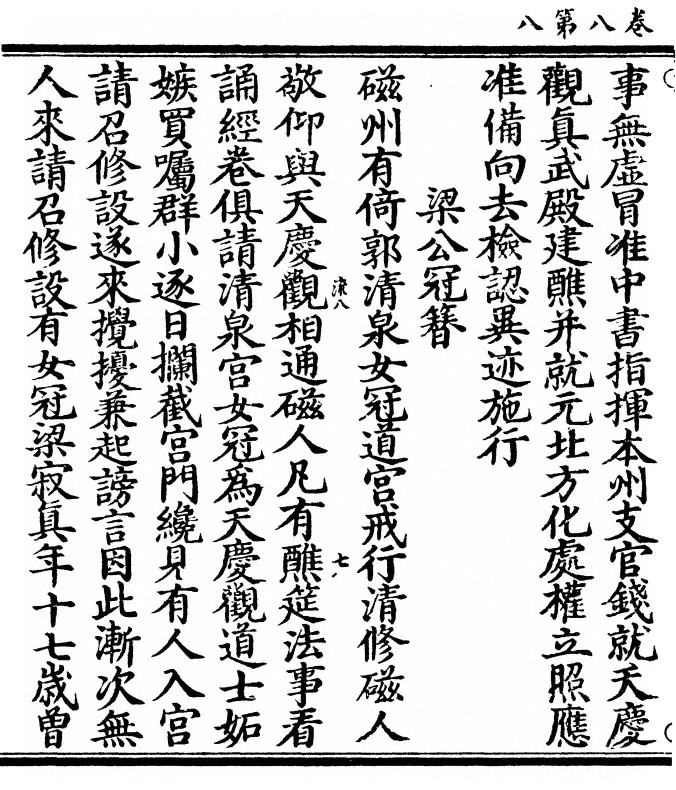 卷八第八
事無虛冒准中書指揮本州支官錢就天慶
觀真武殿建醮并就元北方化處權立照應
准備向去檢認異迹施行
梁公冠簪
磁州有倚郭清泉女冠道宮戒行清修磁人
敬仰與天慶觀相通磁人凡有醮筵法事看
誦經卷俱請清泉宮女冠為天慶觀道士妬
嫉買囑群小逐日攔截宮門纔見有人入宮
請召修設遂來攪擾兼起謗言因此漸次無
人來請召修設有女冠梁寂真年十七歲曾